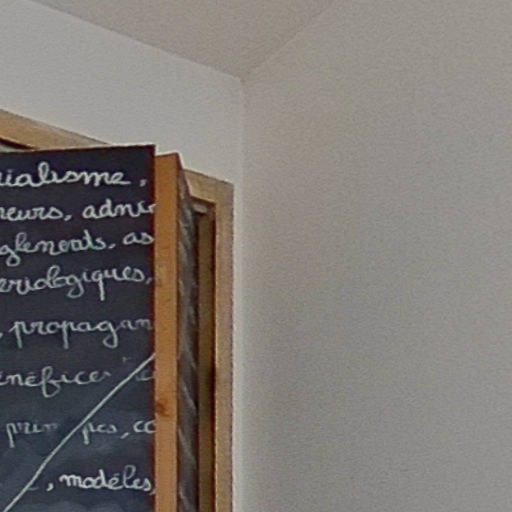 ialisme,
neurs, admi
glements, as
ériologiques,
, propagan
énéfices
prin pes, co
, modèles,